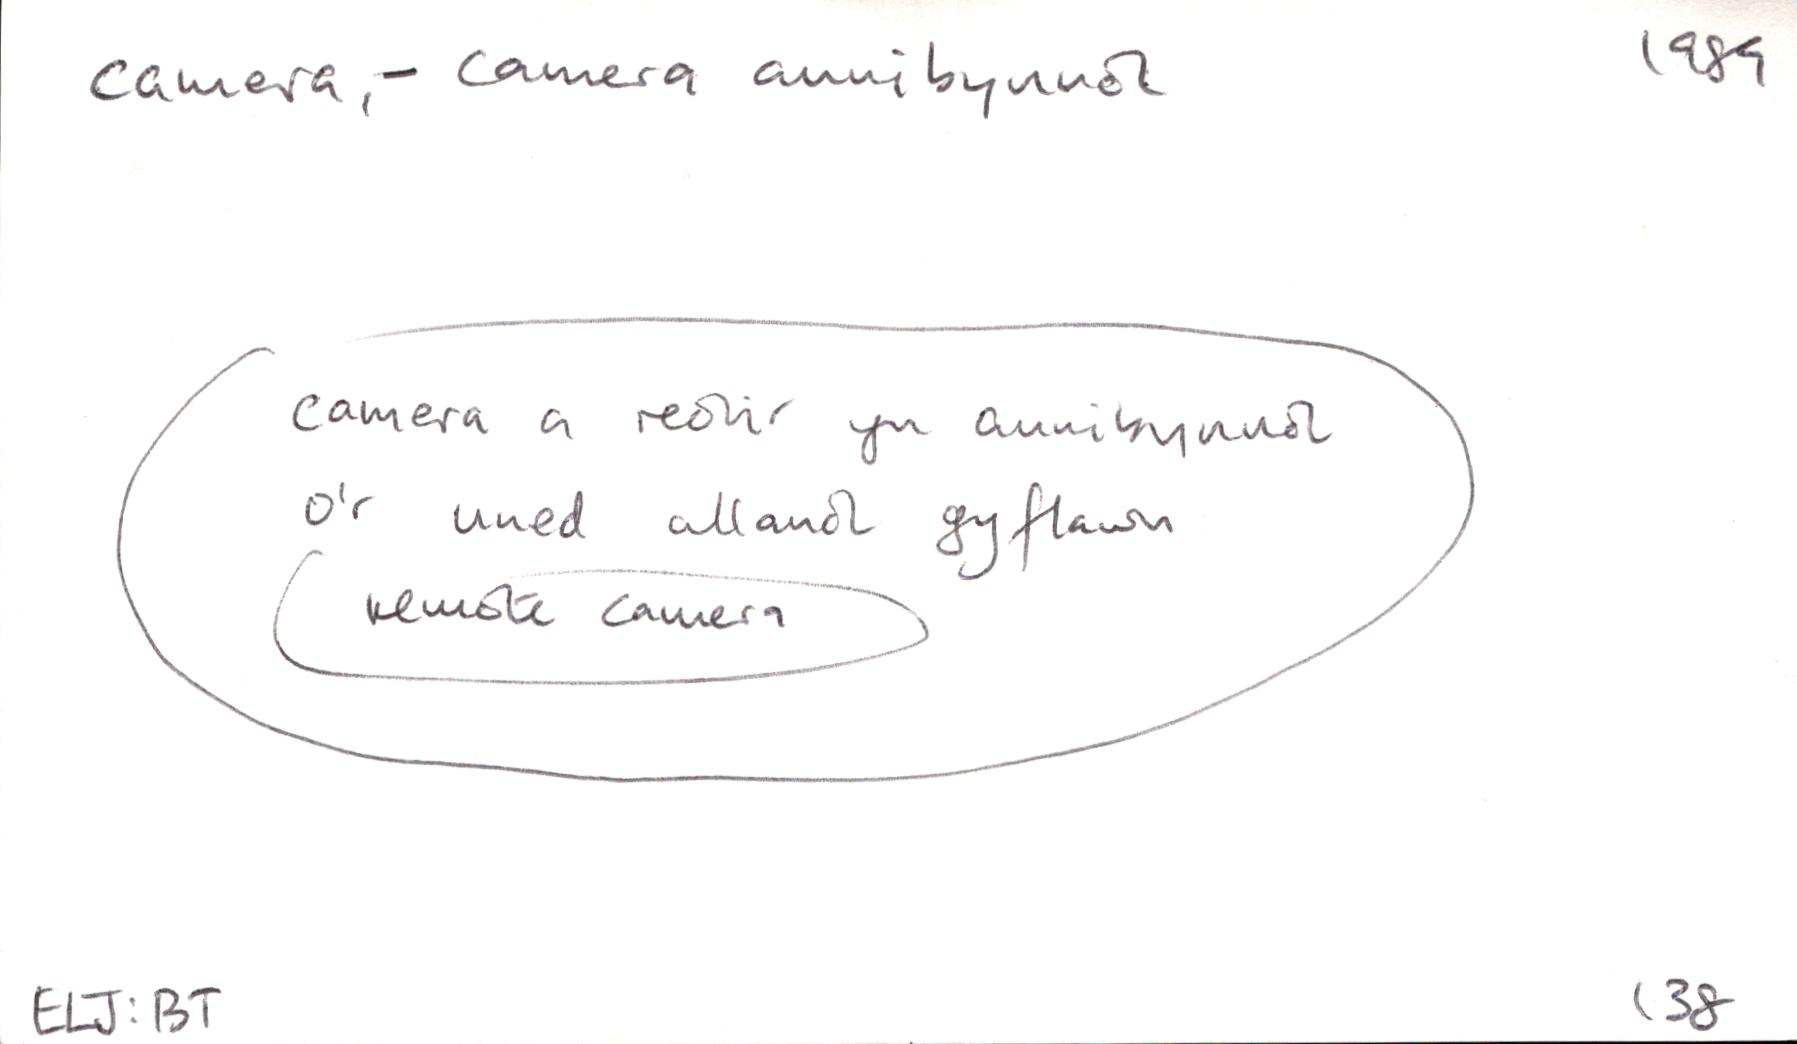 camera, - camera annibynnol 1989
camera a reolir yn annibynnol
o'r uned allanol gyflawn
remote camera
ELJ: BT 138